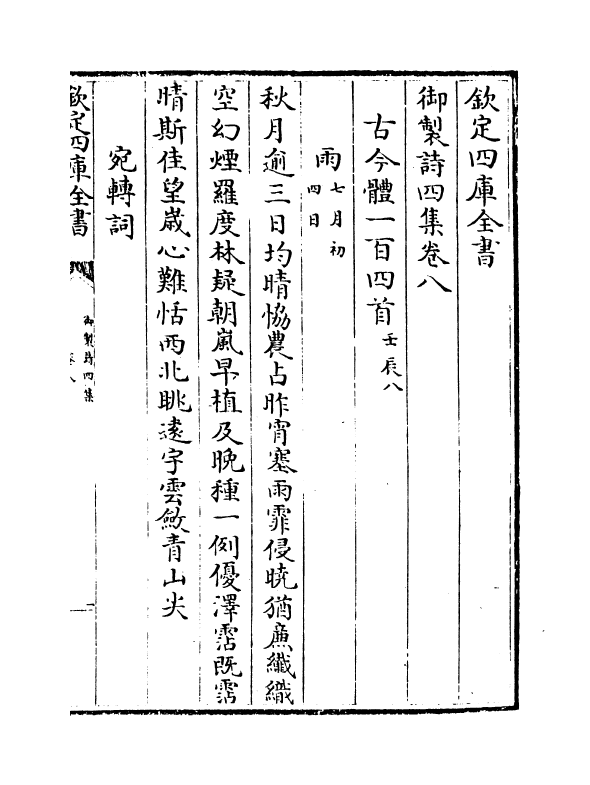 欽定四庫全書
御製詩四集卷八
古今體一百四首壬辰八
雨七月初四日
秋月逾三日均晴恊農占昨宵塞雨霏侵曉猶㢘纖織
空幻煙羅度林疑朝嵐早植及晚種一例優澤霑既霑
晴斯佳望嵗心難恬西北眺遠宇雲斂青山尖
宛轉詞
欽定四庫全書
御製詩四集
卷八
一